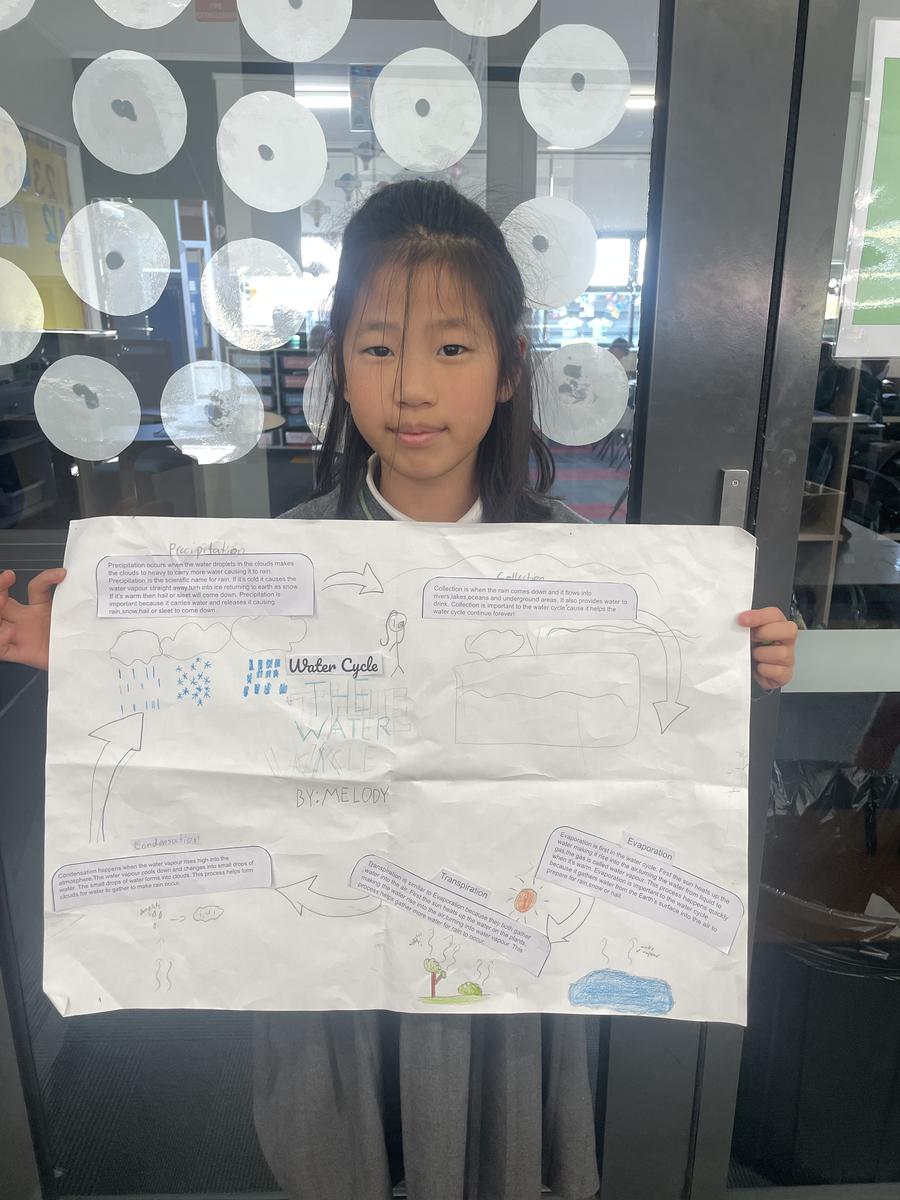 FIRE
Precipitation
Precipitation occurs when the water droplets in the clouds makes
the clouds to heavy to carry more water causing it to rain.
Precipitation is the scientific name for rain. If it's cold it causes the
water vapour straight away turn into ice returning to earth as snow.
If it's warm then hail or sleet will come down. Precipitation is
important because it carries water and releases it causing
rain,snow,hail or sleet to come down.
Collection
Collection is when the rain comes down and it flows into
rivers,lakes,oceans and underground areas. It also provides water to
drink. Collection is important to the water cycle cause it helps the
water cycle continue forever!
Water Cycle
THE
WATER
CYCLE
BY:MELODY
Condensation
Condensation happens when the water vapour rises high into the
atmosphere.The water vapour cools down and changes into small drops of
water. The small drops of water forms into clouds. This process helps form
clouds for water to gather to make rain occur.
Transpiration
Transpiration is similar to Evaporation because they both gather
water into the air. First the sun heats up the water on the plants,
making the water rise into the air,turning into water vapour. This
process helps gather more water for rain to occur.
Evaporation
Evaporation is first in the water cycle. First the sun heats up the
water making it rise into the air,turning the water from liquid to
gas,the gas is called water vapour. This process happens quickly
when it's warm. Evaporation is important to the water cycle
because it gathers water from the Earth's surface into the air to
prepare for rain,snow or hail.